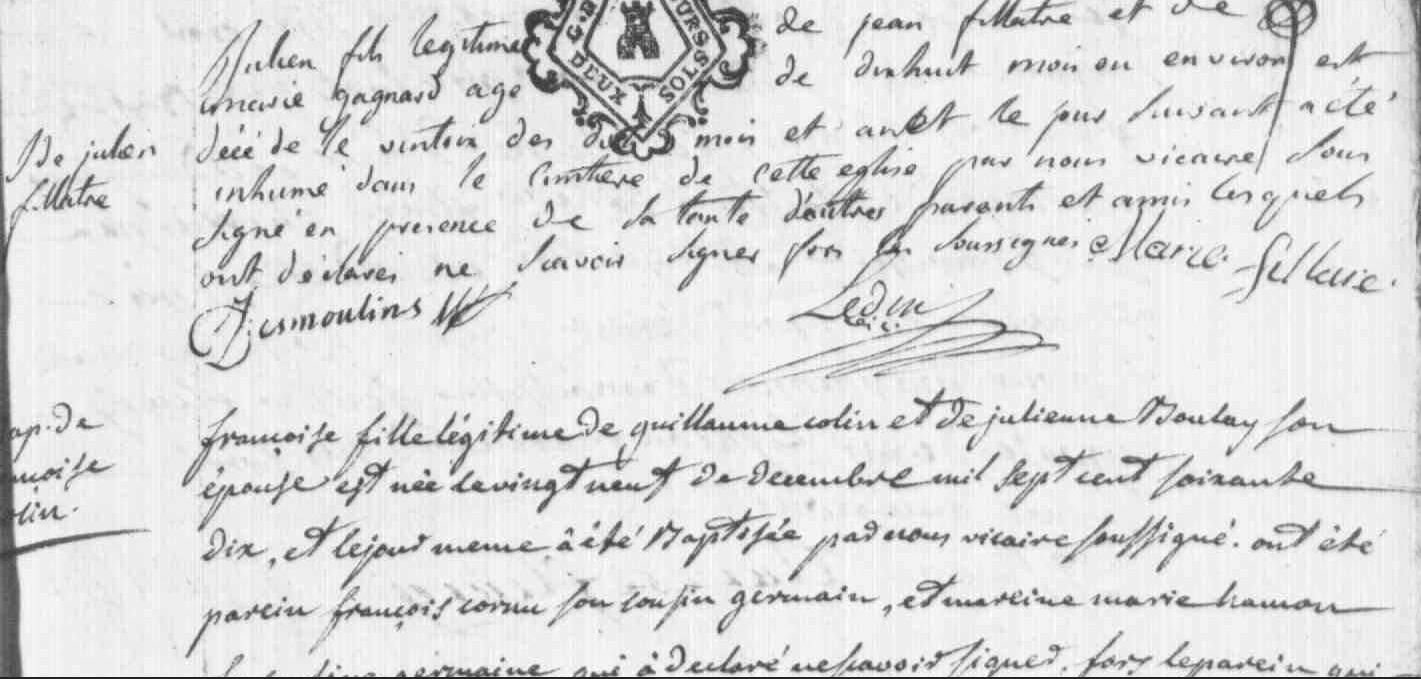 DEUX SOLS
Julien fils legitime de jean fillatre et de
marie gagnard age de dixhuit mois ou environ est
décédé le vintsix des dits mois et an et le jour suivant a été
inhumé dans le cimtiere de cette eglise par nous vicaire sous
signé en presence de sa tante d'autres parents et amis lesquels
ont déclarés ne scavoir signer fors les soussignes Marie fillatre
Desmoulins
De julien
fillatre
françoise fille légitime de guillaume colin et de julienne Boulay son
épouse est née le vingt neuf de decembre mil sept cent soixante
dix, et le jour meme à été Baptisée par nous vicaire soussigné. ont été
parein françois cornu son cousin germain, et mareine marie hamon
germaine qui à déclaré ne scavoir signer. fors le parein qui